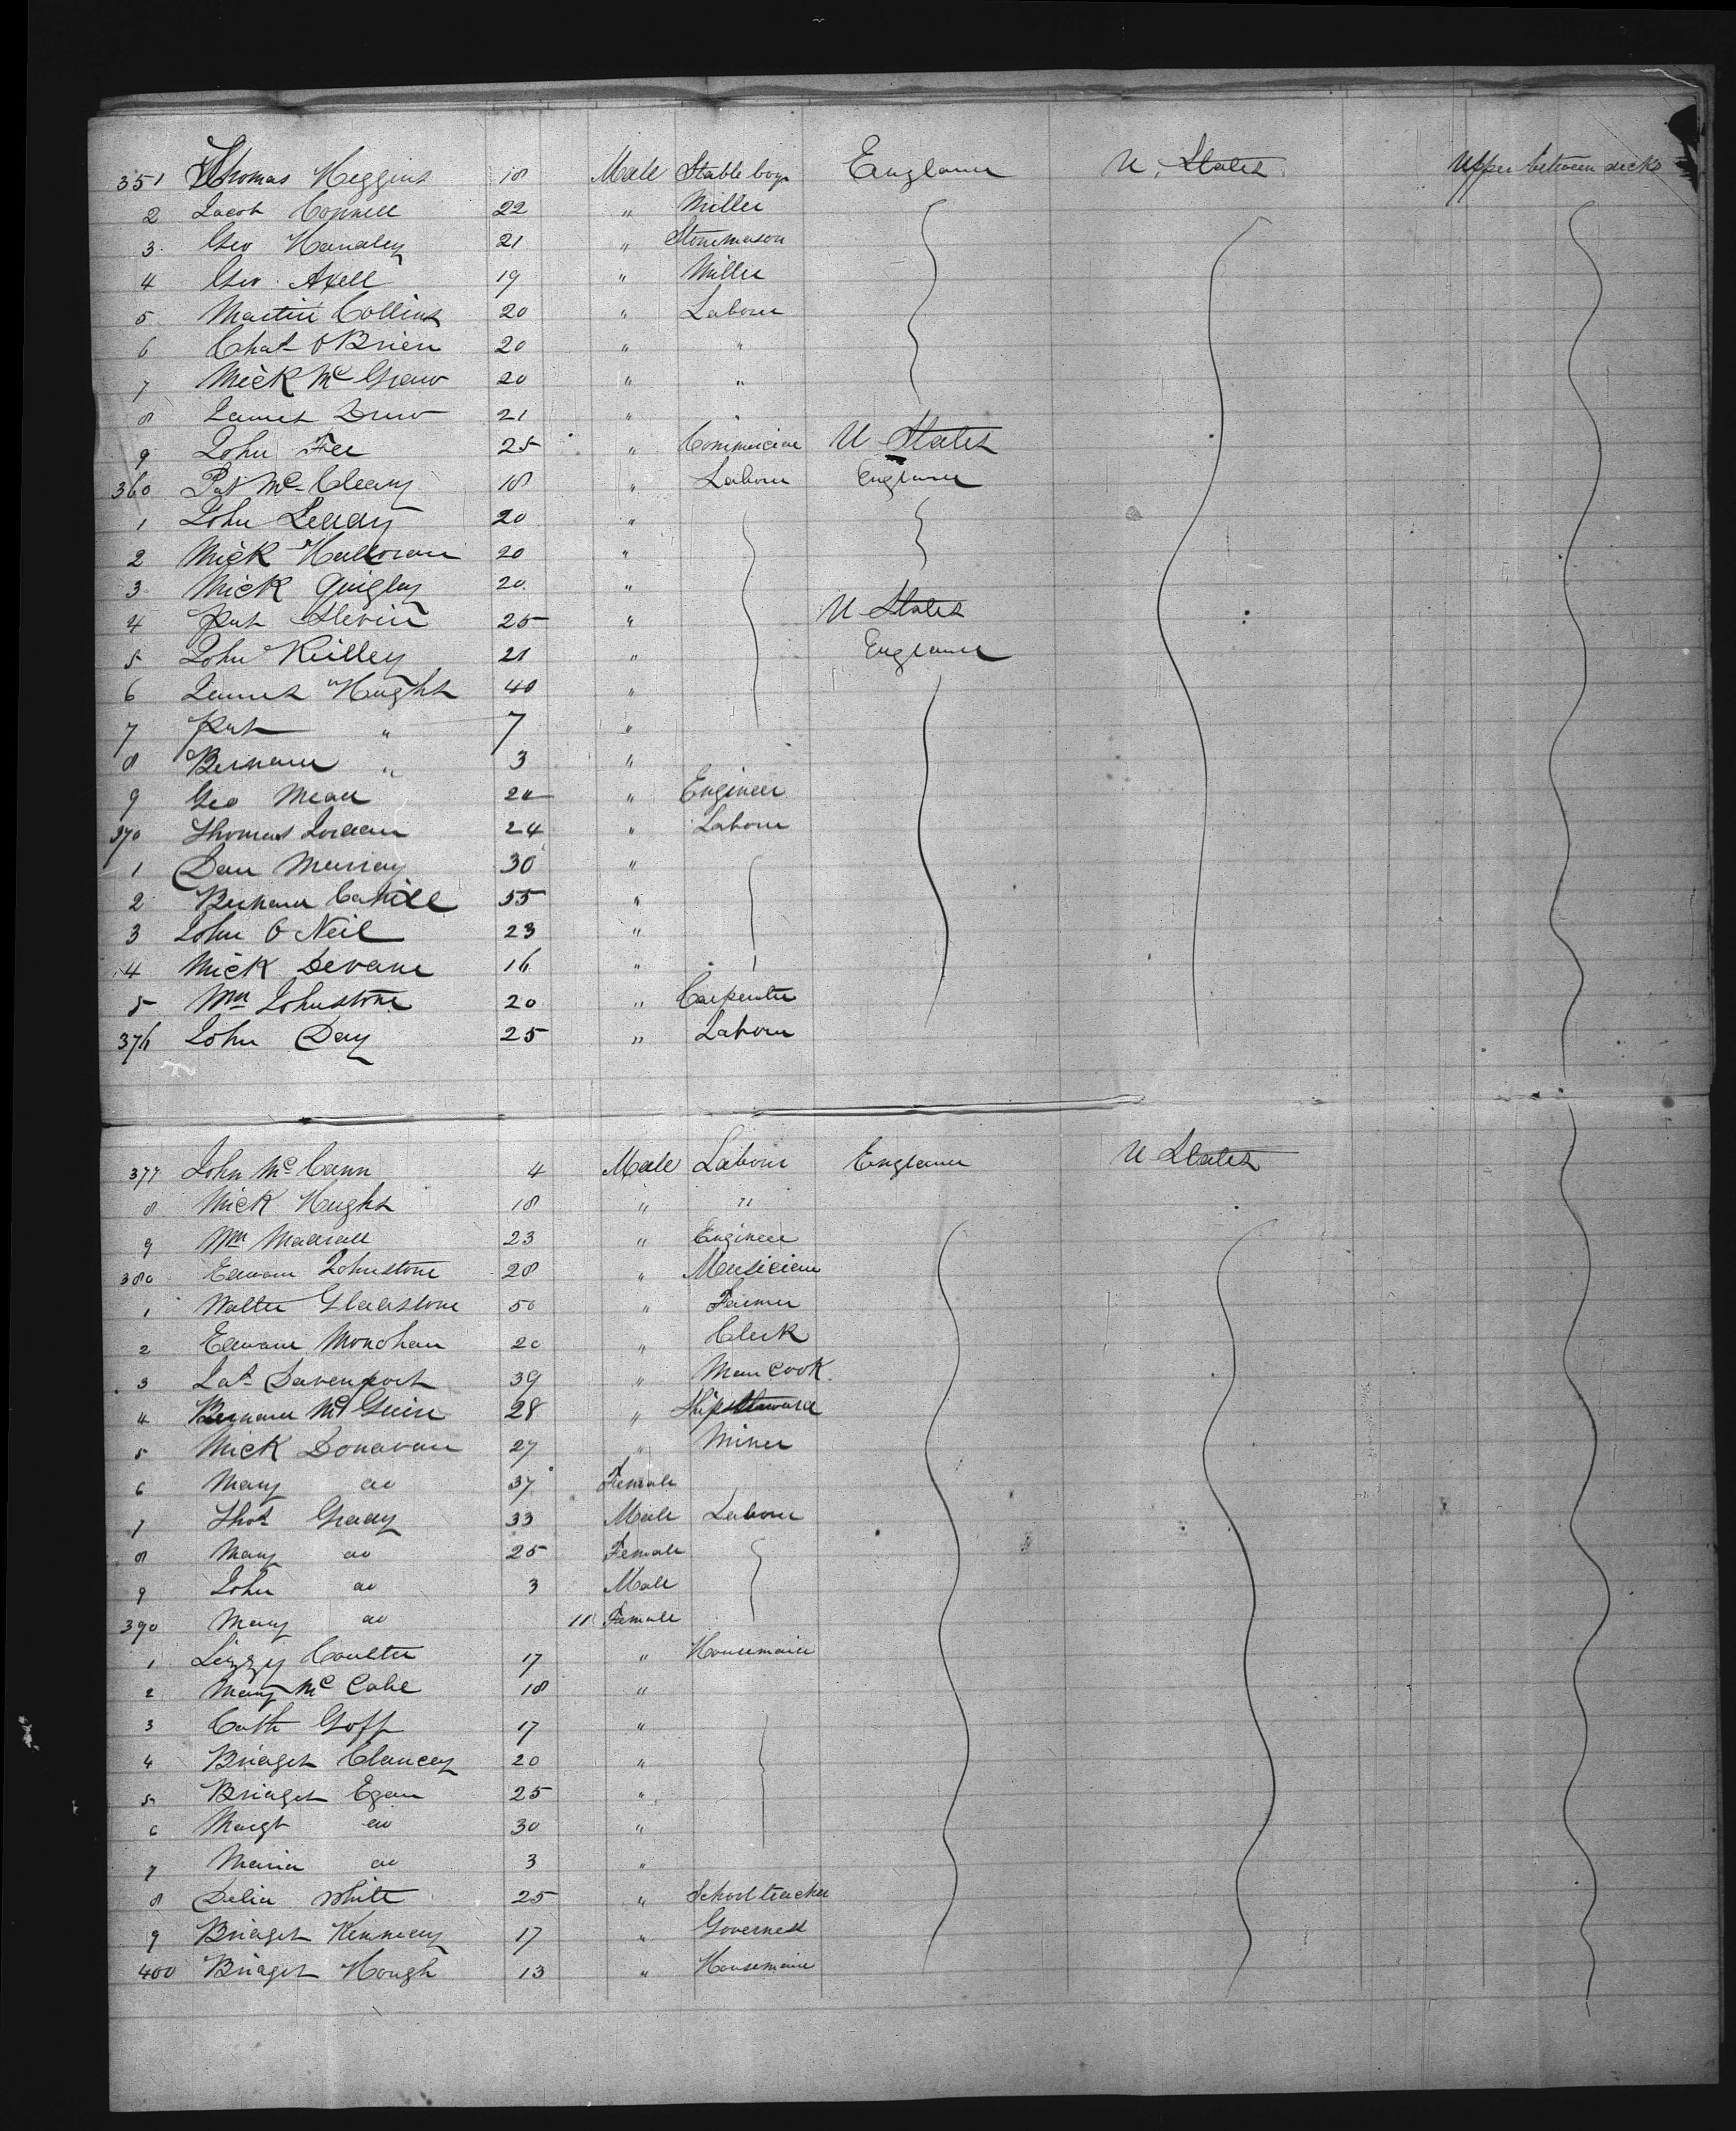 351 Thomas Higgins 18 Male Stable boy England U. States Upper between decks
2 Jacob Connell 22 " Miller
3 Geo Handley 21 " Stonemason
4 Geo Axell 19 " Miller
5 Martin Collins 20 " Labour
6 Chas O Brien 20 " "
7 Mick Mc Graw 20 " "
8 James Drew 21 "
9 John Fee 25 " Commercial U States
360 Pat Mc Cleary 18 " Labour England
1 John Leddy 20 "
2 Mick Halloran 20 "
3 Mick Quigley 20 "
4 Pat Slevin 25 " U States
5 John Reilley 21 " England
6 James Hughs 40 "
7 Pat " 7 "
8 Bernard " 3 "
9 Geo Mead " Engineer
370 Thomas Jordan 24 " Labour
1 Dan Murray 30 "
2 Bernard Cahill 55 "
3 John O Neil 23 "
4 Mick Devane 16 "
5 Wm Johnstone 20 " Carpenter
376 John Day 25 " Labour
377 John Mc Cann 4 Male Labour England U States
8 Mick Hughs 18 " "
9 Wm 23 " Engineer
380 Edward Johnstone 28 " Musician
1 Walter Gladstone 50 " Farmer
2 Edward Monohan 20 " Clerk
3 Jas Davenport 39 " Man Cook
4 Bernard Mc Guire 28 " Ship Steward
5 Mick Donavan 27 " Miner
6 Mary do 37 Female
7 Thos Grady 33 Male Labour
8 Mary do 25 Female
9 John do 3 Male
390 Mary do 11 Female
1 Lizzy Coulter 17 " Housemaid
2 Mary Mc Cabe 18 "
3 Cath Goff 17 "
4 Bridget Clancey 20 "
5 Bridget Egan 25 "
6 Margt do 30 "
7 Maria do 3 "
8 Delia White 25 " School teacher
9 Bridget Kennedy 17 " Governess
400 Bridget Hough 13 " Housemaid